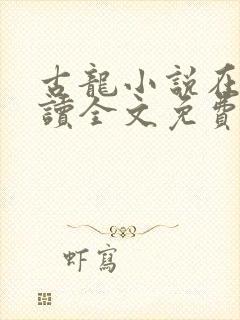 古龍小說在
讀全文免費
虾寫